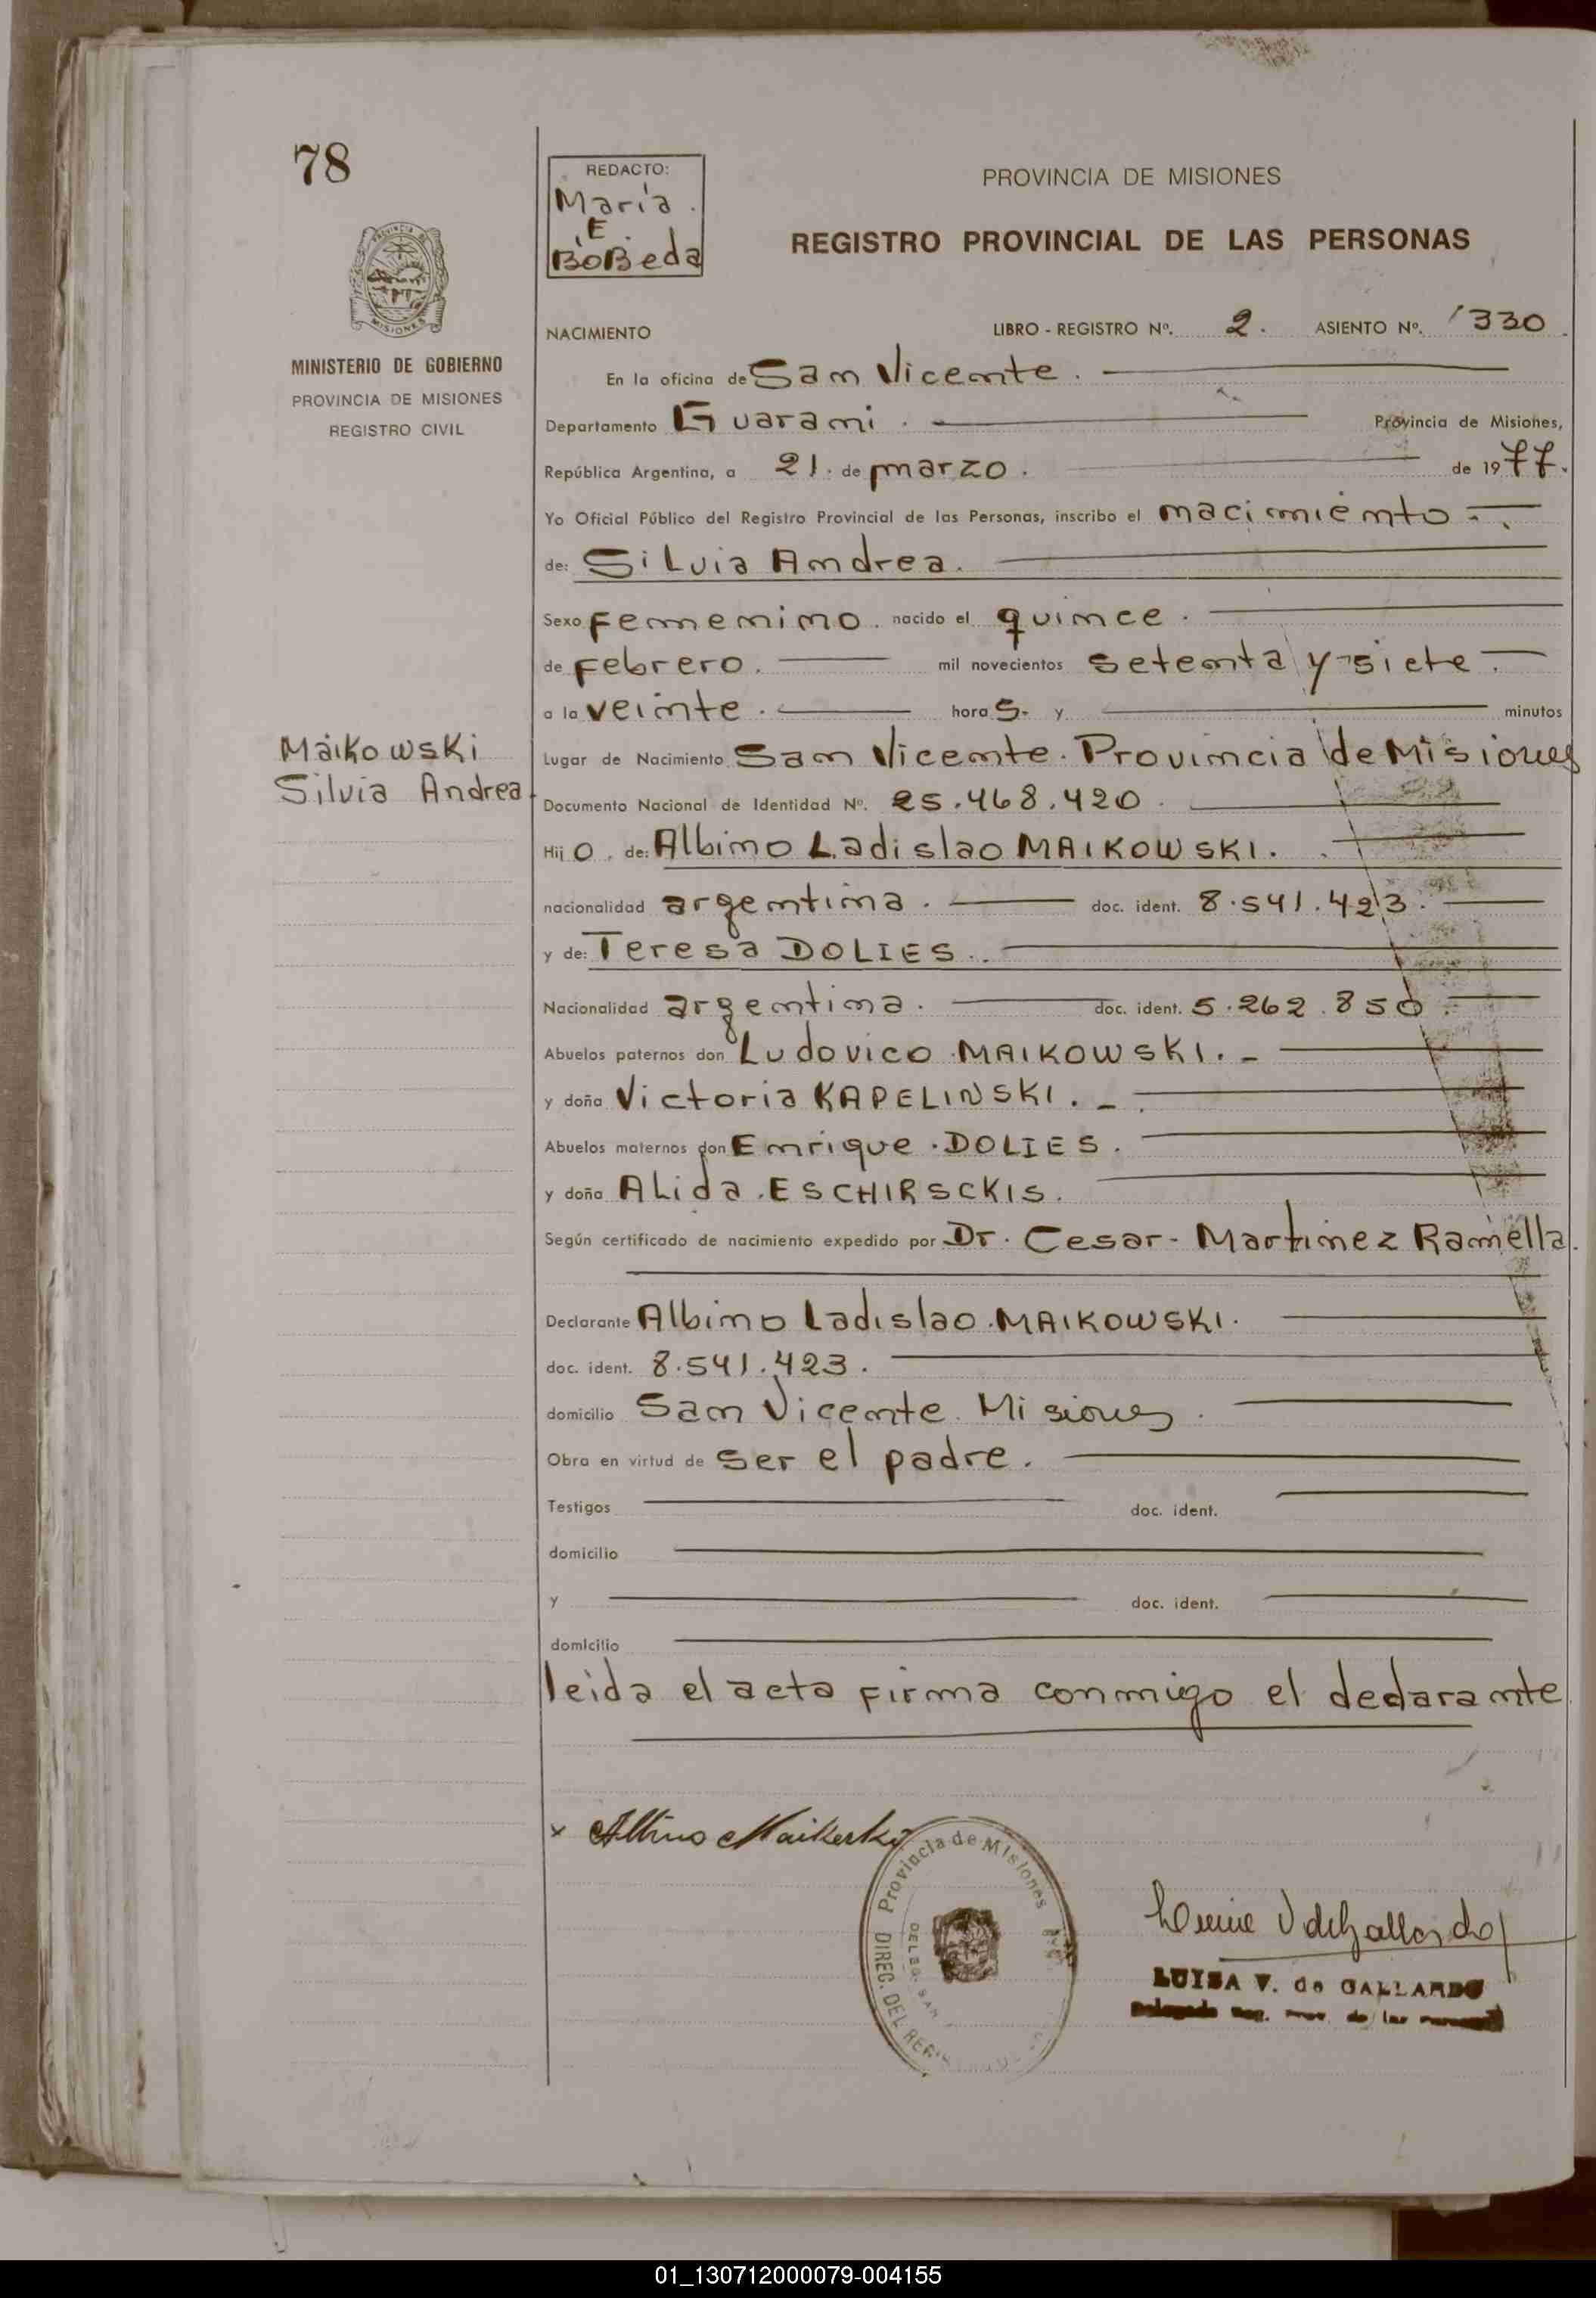 78
REDACTO:
María
E
BoBeda
PROVINCIA DE MISIONES
REGISTRO PROVINCIAL DE LAS PERSONAS
PROVINCIA DE
MISIONES
MINISTERIO DE GOBIERNO
PROVINCIA DE MISIONES
REGISTRO CIVIL
NACIMIENTO LIBRO - REGISTRO Nº. 2. ASIENTO Nº. 330
En la oficina de San Vicente.
Departamento Guarani. Provincia de Misiones,
República Argentina, a 21. de marzo. de 1977.
Yo Oficial Público del Registro Provincial de las Personas, inscribo el nacimiento
de: Silvia Andrea.
Sexo femenino. nacido el quince.
de febrero. mil novecientos setenta y siete.
a la veinte. horas. y minutos
Maikowski
Silvia Andrea
Lugar de Nacimiento San Vicente. Provincia de Misiones
Documento Nacional de Identidad Nº. 25.468.420.
Hijo. de: Albino Ladislao MAIKOWSKI.
nacionalidad argentina. doc. ident. 8.541.423.
y de: Teresa DOLIES.
Nacionalidad argentina. doc. ident. 5.262.850.
Abuelos paternos don Ludovico MAIKOWSKI. -
y doña Victoria KAPELINSKI. -
Abuelos maternos don Enrique DOLIES.
y doña ALida ESCHIRSCKIS.
Según certificado de nacimiento expedido por Dr. Cesar- Martinez Ramella.
Declarante Albino Ladislao MAIKOWSKI.
doc. ident. 8.541.423.
domicilio San Vicente Misiones.
Obra en virtud de ser el padre.
Testigos doc. ident.
domicilio
y doc. ident.
domicilio
leida el acta firma conmigo el declarante
x Albino Maikoski
Provincia de Misiones
DIREC. DEL
DELEG. SAN
V de Gallardo
LUISA V. de GALLARDO
01_130712000079-004155